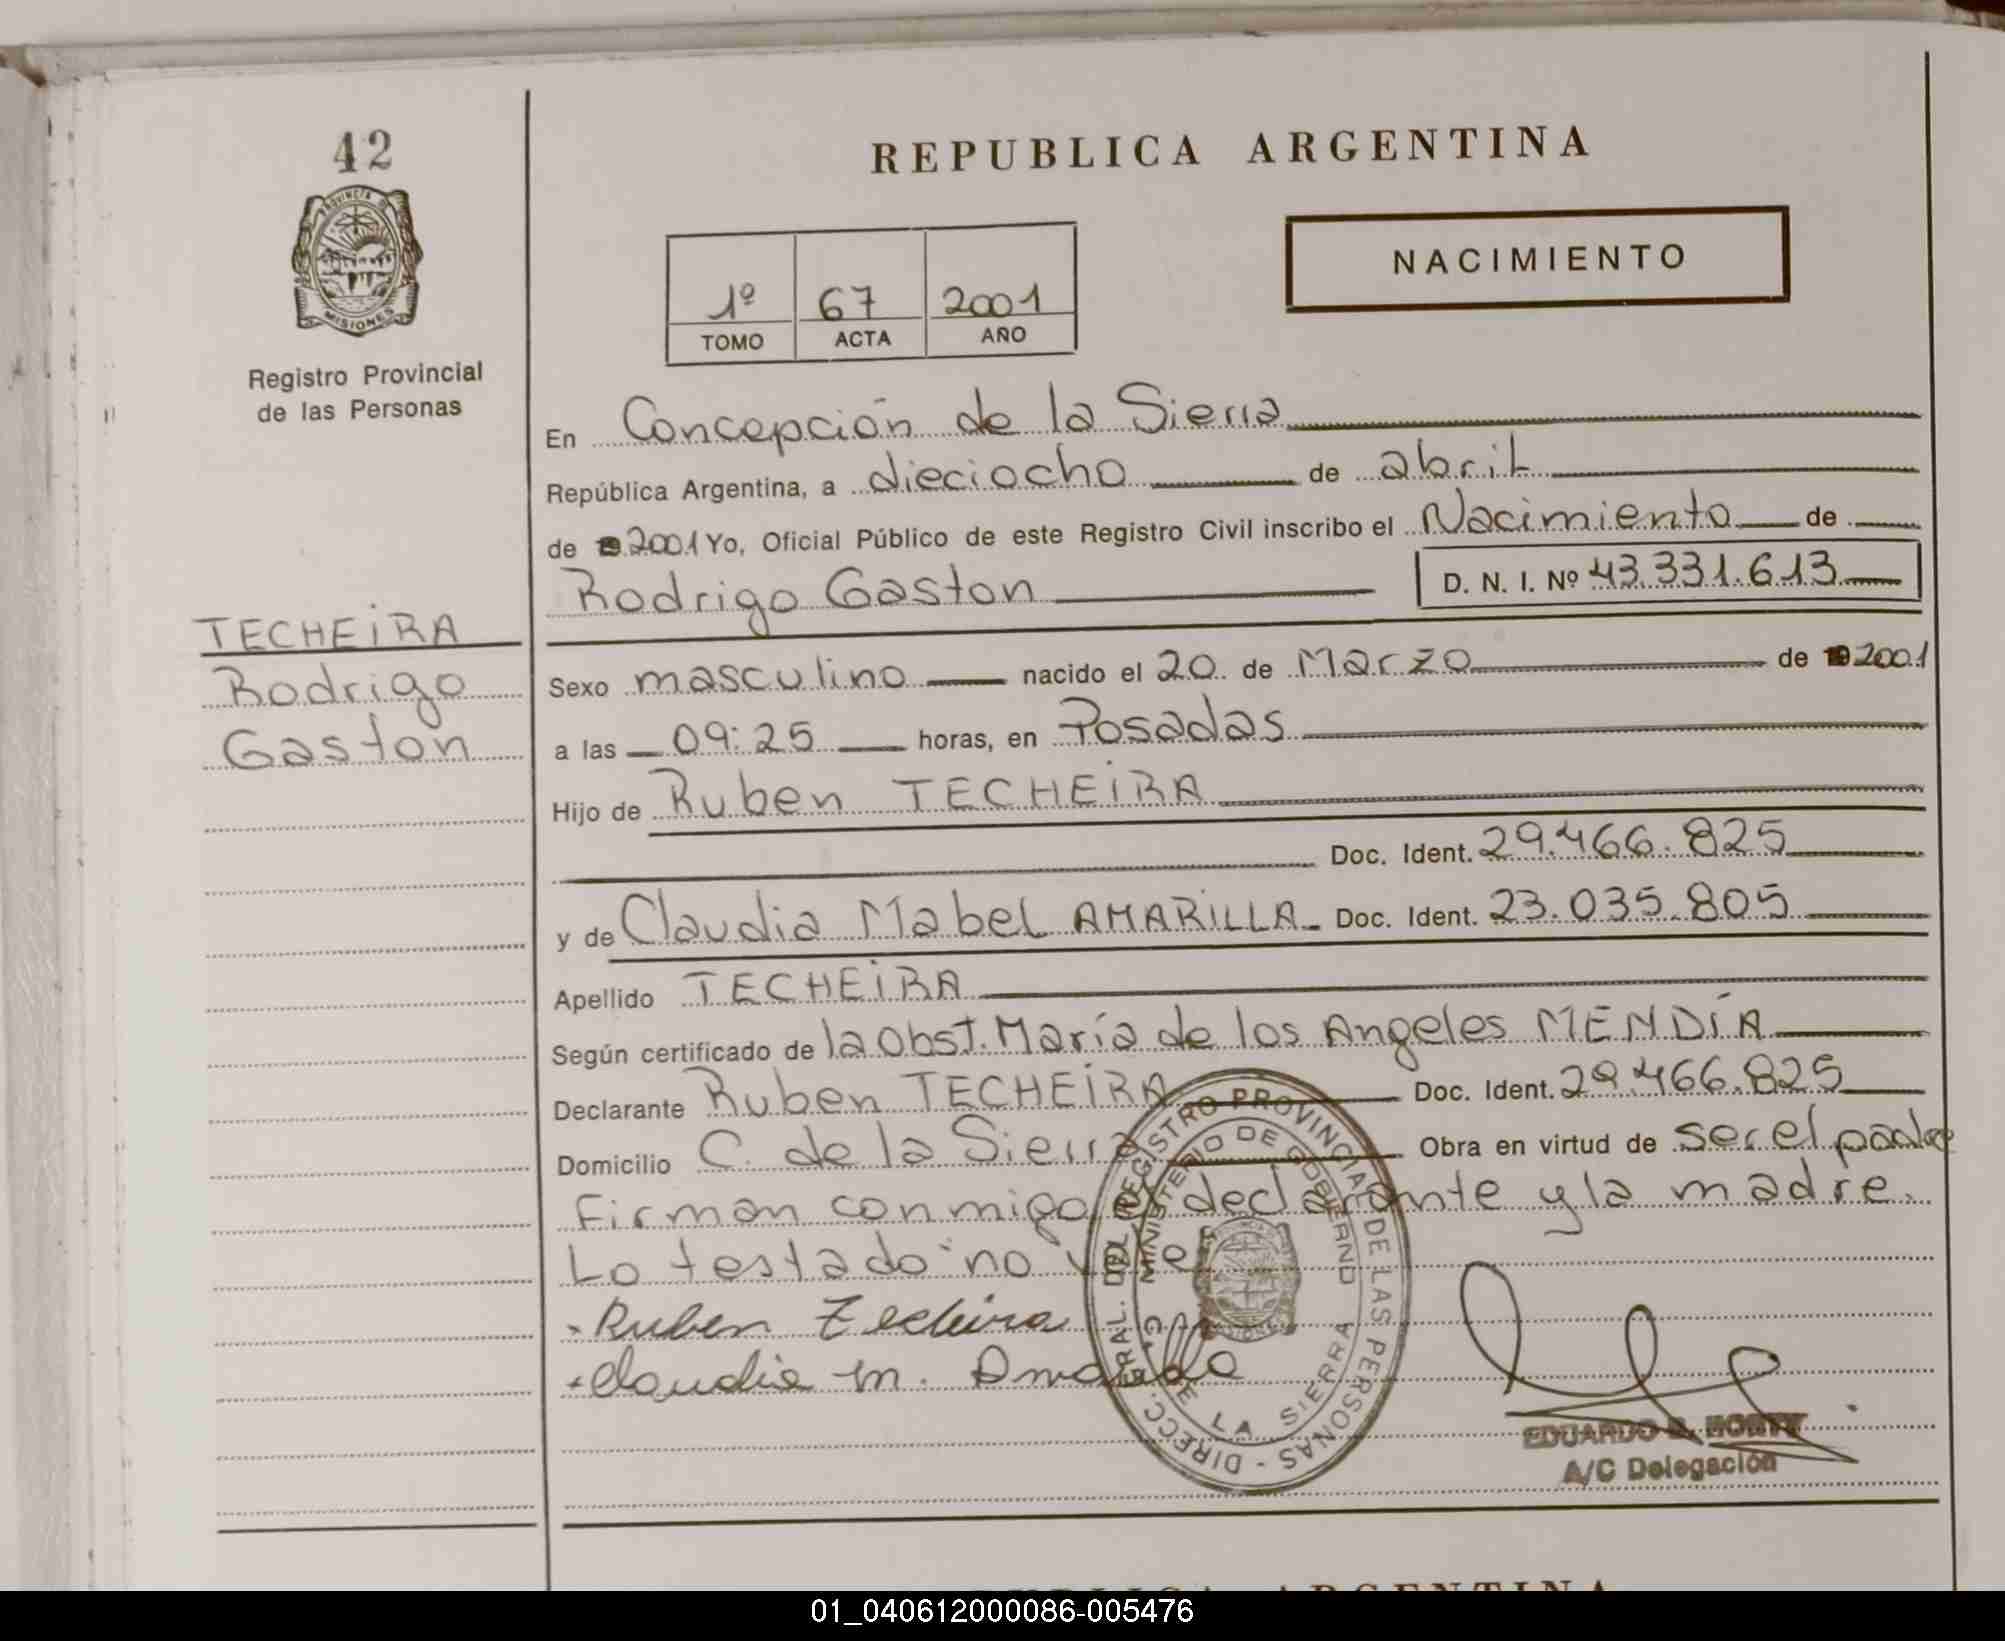 42
PROVINCIA DE
MISIONES
Registro Provincial
de las Personas
TECHEIRA
Rodrigo
Gaston
REPUBLICA ARGENTINA
NACIMIENTO
1º 67 2001
TOMO ACTA AÑO
En Concepción de la Sierra
República Argentina, a dieciocho de abril
de 2001 Yo, Oficial Público de este Registro Civil inscribo el Nacimiento de
Rodrigo Gaston D. N. I. Nº 43.331.613
Sexo masculino nacido el 20 de Marzo de 2001
a las 09:25 horas, en Posadas
Hijo de Ruben TECHEIRA
Doc. Ident. 29.466.825
y de Claudia Mabel AMARILLA Doc. Ident. 23.035.805
Apellido TECHEIRA
Según certificado de la Obst. María de los Angeles MENDÍA
Declarante Ruben TECHEIRA Doc. Ident. 29.466.825
Domicilio C. de la Sierra Obra en virtud de ser el padre
Firman conmigo el declarante y la madre.
Lo testado no
Ruben Techeira
Claudia M.
DIRECC. GRAL. DEL REGISTRO PROVINCIAL DE LAS PERSONAS
MINISTERIO DE GOBIERNO
C. DE LA SIERRA
EDUARDO
A/C Delegación
REPUBLICA ARGENTINA
01_040612000086-005476